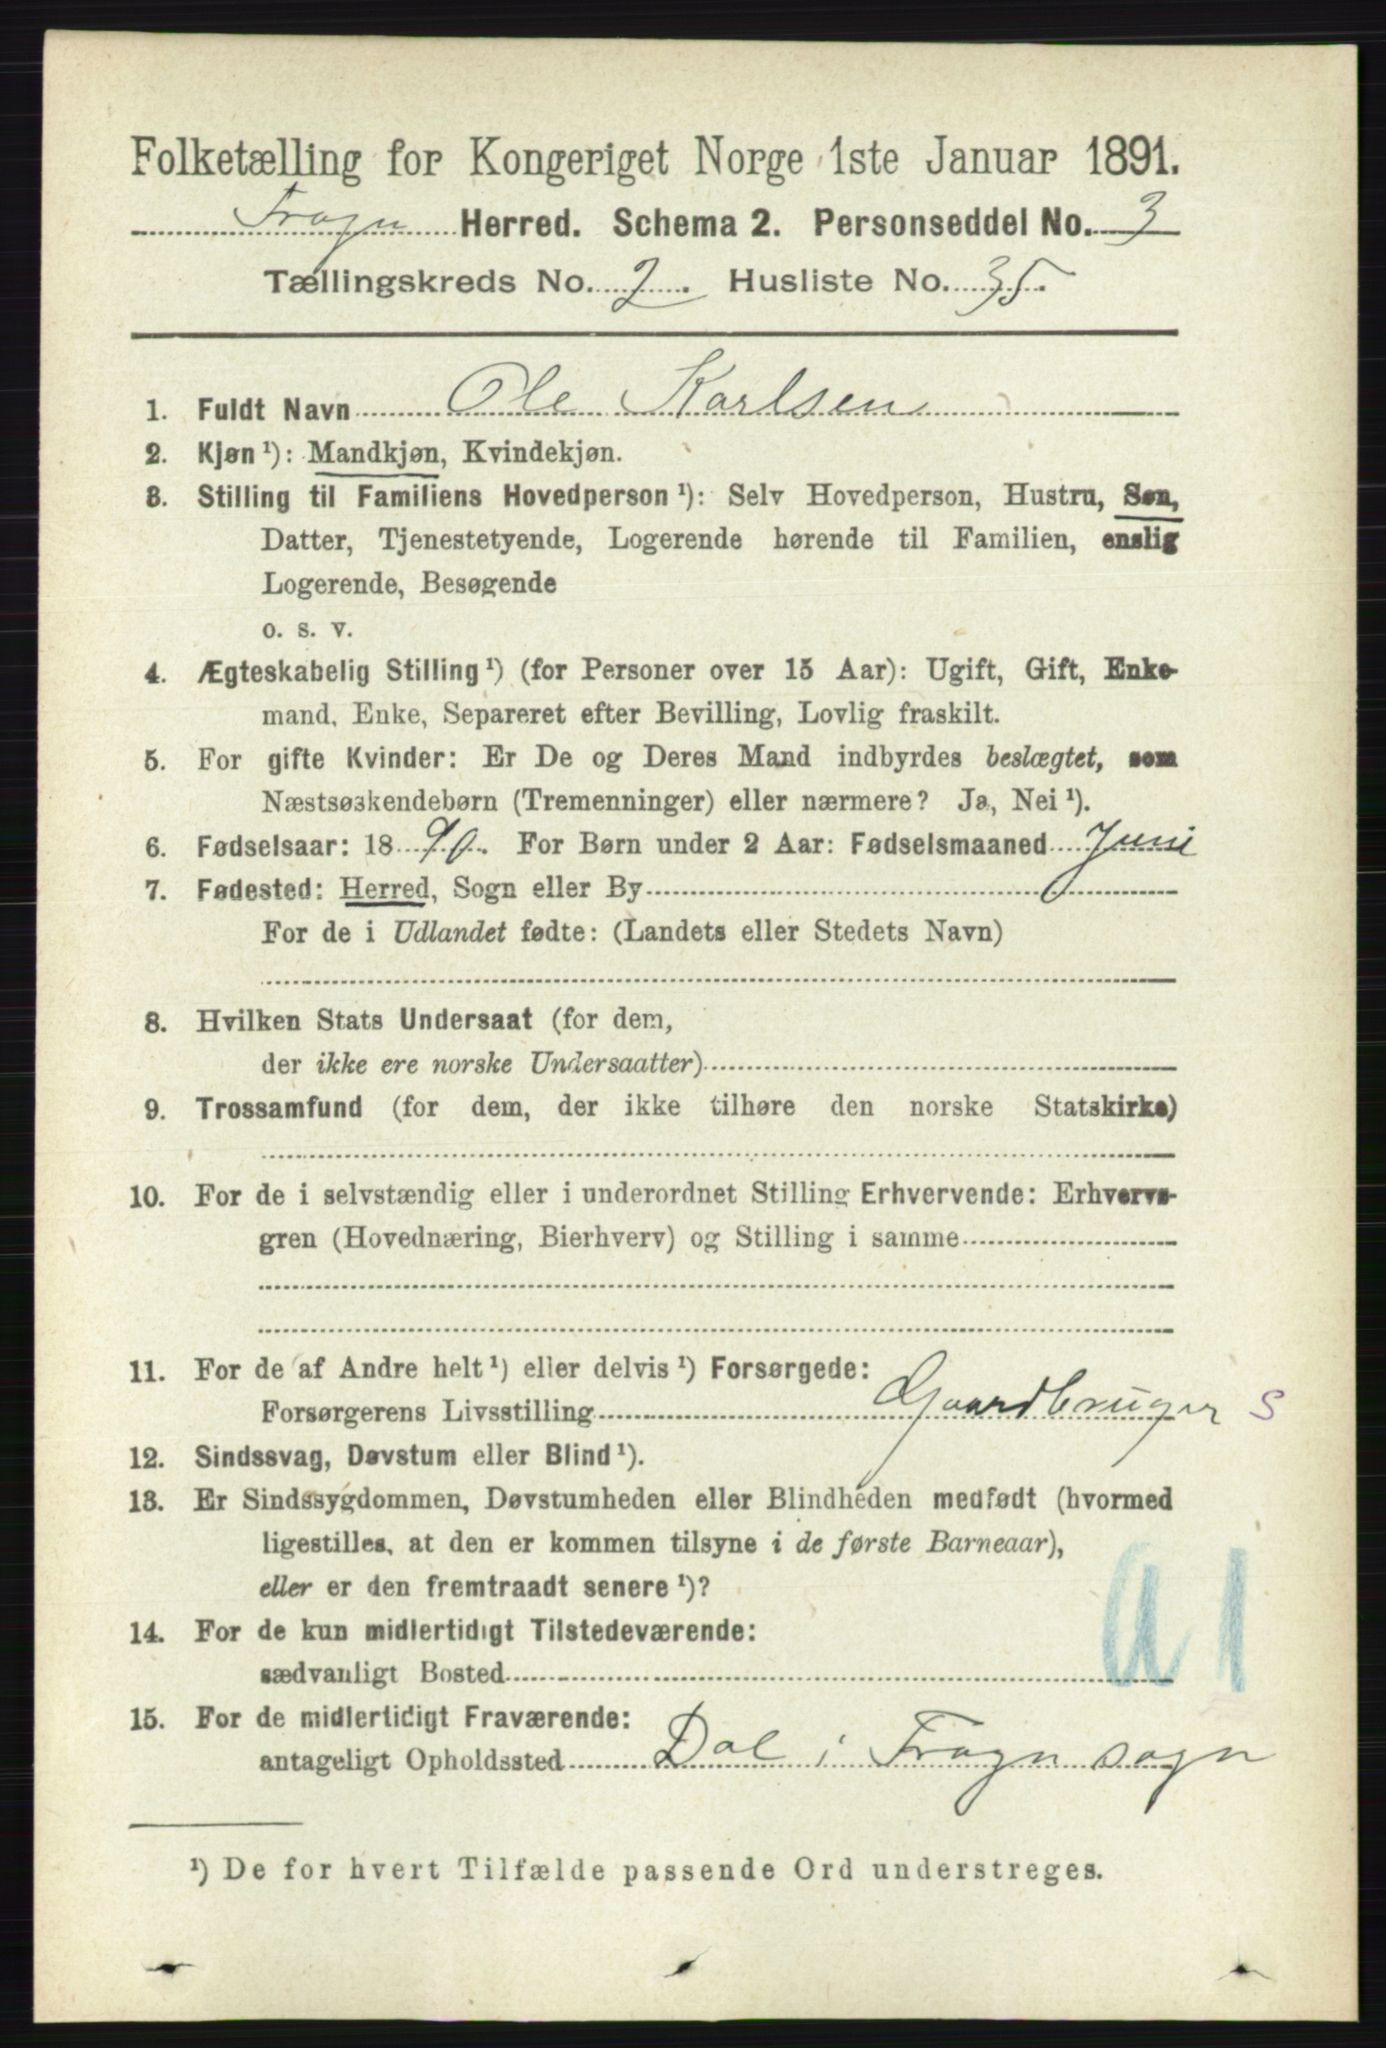 Folketælling for Kongeriget Norge 1ste Januar 1891.
Frogn Herred. Schema 2. Personseddel No. 3
Tællingskreds No. 2. Husliste No. 35.
1. Fuldt Navn Ole Karlsen
2. Kjøn ¹): Mandkjøn, Kvindekjøn.
3. Stilling til Familiens Hovedperson ¹): Selv Hovedperson, Hustru, Søn,
Datter, Tjenestetyende, Logerende hørende til Familien, enslig
Logerende, Besøgende
o. s. v.
4. Ægteskabelig Stilling ¹) (for Personer over 15 Aar): Ugift, Gift, Enke-
mand, Enke, Separeret efter Bevilling, Lovlig fraskilt.
5. For gifte Kvinder: Er De og Deres Mand indbyrdes beslægtet, som
Næstsøskendebørn (Tremenninger) eller nærmere? Ja, Nei ¹).
6. Fødselsaar: 18 90. For Børn under 2 Aar: Fødselsmaaned Juni
7. Fødested: Herred, Sogn eller By
For de i Udlandet fødte: (Landets eller Stedets Navn)
8. Hvilken Stats Undersaat (for dem,
der ikke ere norske Undersaatter)
9. Trossamfund (for dem, der ikke tilhøre den norske Statskirke)
10. For de i selvstændig eller i underordnet Stilling Erhvervende: Erhvervs-
gren (Hovednæring, Bierhverv) og Stilling i samme
11. For de af Andre helt ¹) eller delvis ¹) Forsørgede:
Forsørgerens Livsstilling Gaardbruger S
12. Sindssvag, Døvstum eller Blind ¹).
13. Er Sindssygdommen, Døvstumheden eller Blindheden medfødt (hvormed
ligestilles, at den er kommen tilsyne i de første Barneaar),
eller er den fremtraadt senere ¹)?
14. For de kun midlertidigt Tilstedeværende:
sædvanligt Bosted
a 1
15. For de midlertidigt Fraværende:
antageligt Opholdssted Dal i Frogn sogn
¹) De for hvert Tilfælde passende Ord understreges.